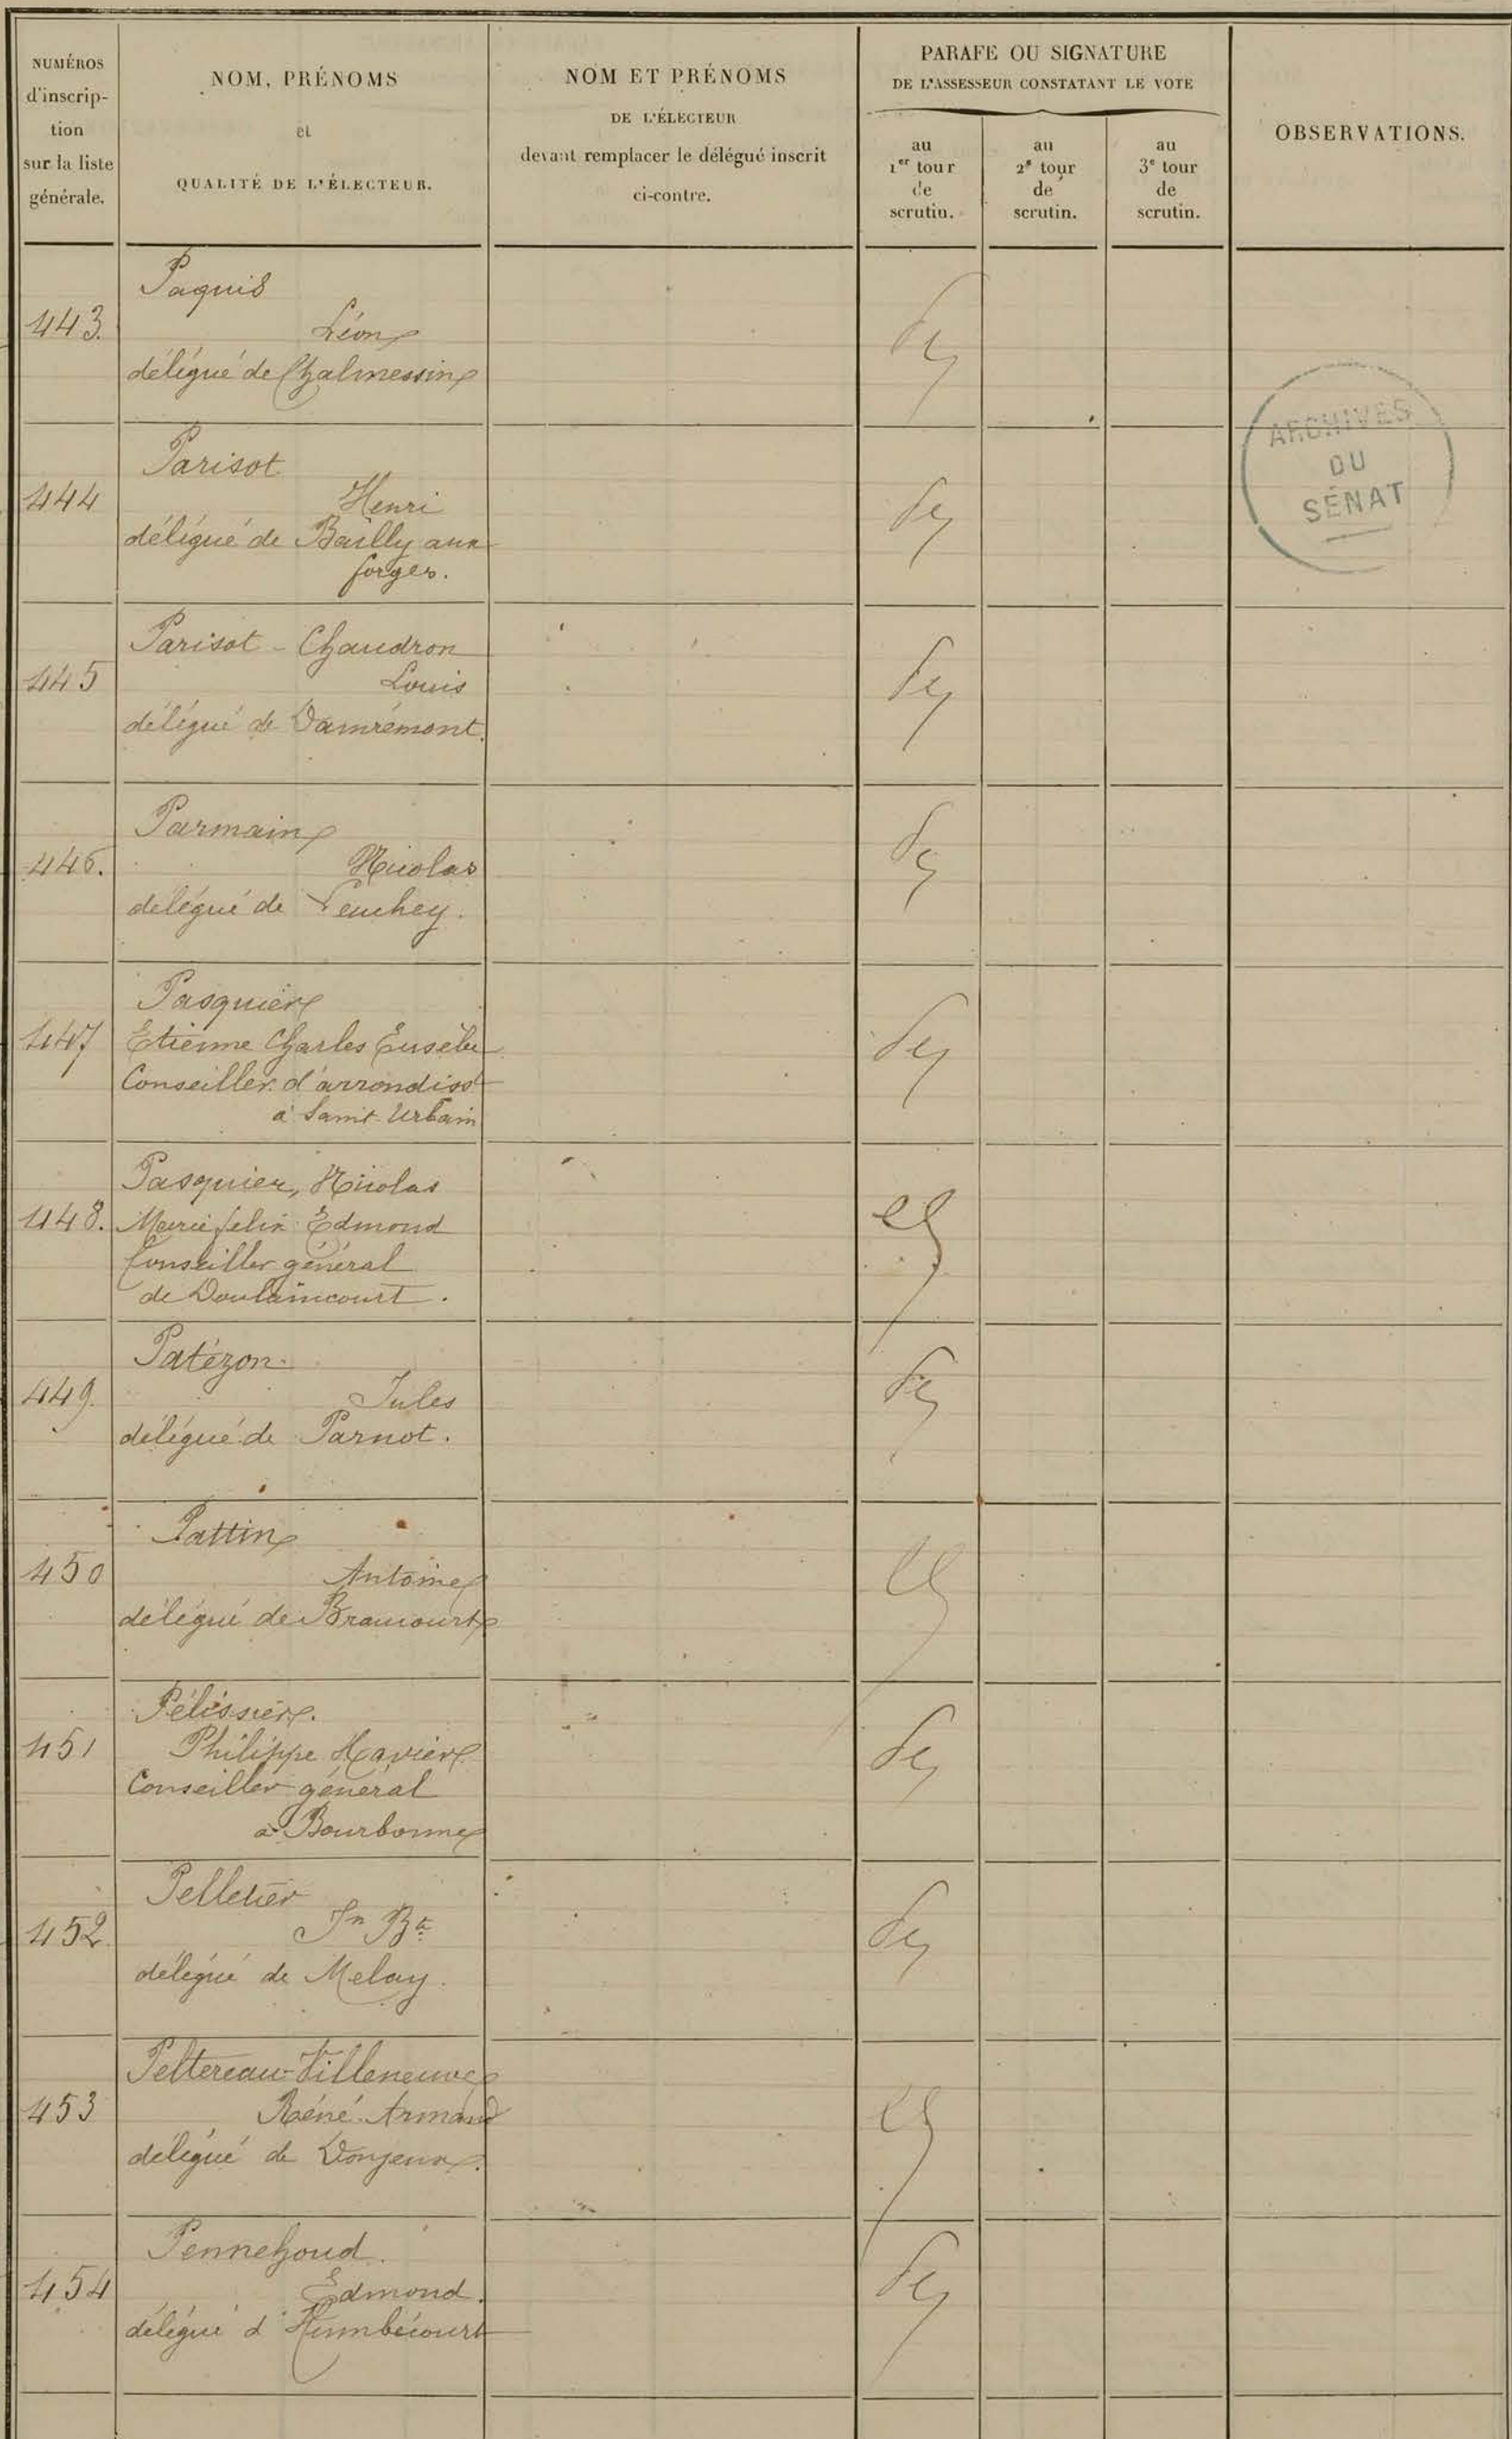 NUMÉROS
d'inscrip-
tion
sur la liste
générale.
NOM, PRÉNOMS
et
QUALITÉ DE L'ÉLECTEUR.
NOM ET PRÉNOMS
DE L'ÉLECTEUR
devant remplacer le délégué inscrit
ci-contre.
PARAFE OU SIGNATURE
DE L'ASSESSEUR CONSTATANT LE VOTE
au
1er tour
de
scrutin.
au
2e tour
de
scrutin.
au
3e tour
de
scrutin.
OBSERVATIONS.
Paquis
443.
Léon
délégué de Chalmessin
ARCHIVES
DU
SÉNAT
Parisot
444
Henri
délégué de Bailly aux
forges.
Parisot - Chaudron
445
Louis
délégué de Damrémont.
Parmain
446.
Nicolas
délégué de Leuchey.
Pasquier
447
Etienne Charles Eusèbe
Conseiller d'arrondisst
à Saint-Urbain
Pasquier, Nicolas
448.
Marie felix Edmond
Conseiller général
de Doulaincourt.
Patézon.
449.
Jules
délégué de Parnot.
Pattin
450
Antoine
délégué de Braucourt
Pélissier.
451
Philippe Xavier
Conseiller général
à Bourbonne
Pelletier
452
Jn Bte
délégué de Melay.
Peltereau-Villeneuve
453
Réné-Armand
délégué de Donjeux.
Pennehoud.
454
Edmond.
délégué d'Humbécourt